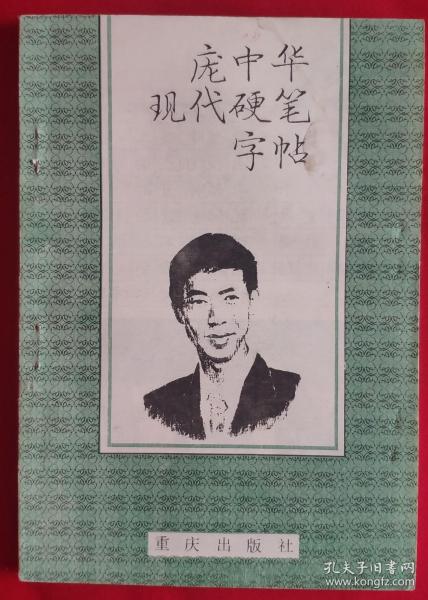 庞中华
现代硬笔
字帖
重庆出版社
孔夫子旧书网
kongfz.com